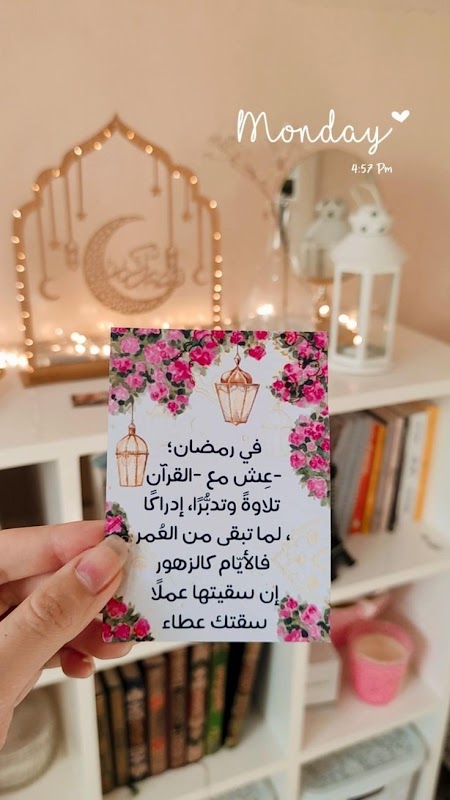 Monday
4:57 Pm
في رمضان؛
-عِش مع -القرآن
تلاوةً وتدبُّرًا، إدراكًا
، لما تبقى من العُمر
فالأيّام كالزهور
إن سقيتها عملًا
سقتك عطاء